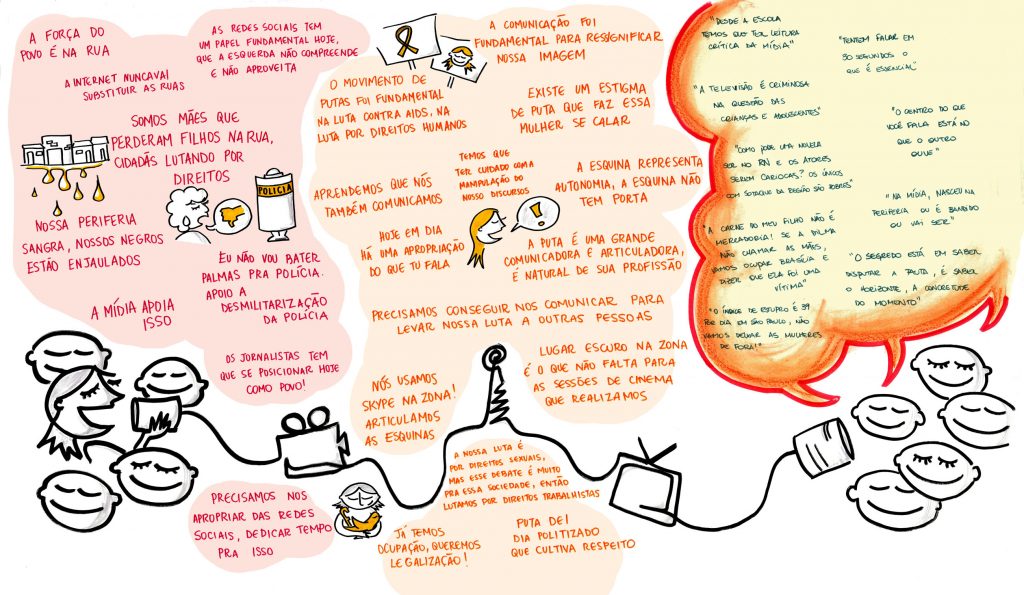 A FORÇA DO
POVO É NA RUA
A INTERNET NUNCAVAI
SUBSTITUIR AS RUAS
AS REDES SOCIAIS TEM
UM PAPEL FUNDAMENTAL HOJE,
QUE A ESQUERDA NÃO COMPREENDE
E NÃO APROVEITA
SOMOS MÃES QUE
PERDERAM FILHOS NA RUA,
CIDADÃS LUTANDO POR
DIREITOS
POLÍCIA
NOSSA PERIFERIA
SANGRA, NOSSOS NEGROS
ESTÃO ENJAULADOS
EU NÃO VOU BATER
PALMAS PRA POLÍCIA.
APOIO A
DESMILITARIZAÇÃO
DA POLÍCIA
A MÍDIA APOIA
ISSO
OS JORNALISTAS TEM
QUE SE POSICIONAR HOJE
COMO POVO!
PRECISAMOS NOS
APROPRIAR DAS REDES
SOCIAIS, DEDICAR TEMPO
PRA ISSO
A COMUNICAÇÃO FOI
FUNDAMENTAL PARA RESSIGNIFICAR
NOSSA IMAGEM
O MOVIMENTO DE
PUTAS FUI FUNDAMENTAL
NA LUTA CONTRA AIDS, NA
LUTA POR DIREITOS HUMANOS
EXISTE UM ESTIGMA
DE PUTA QUE FAZ ESSA
MULHER SE CALAR
APRENDEMOS QUE NÓS
TAMBÉM COMUNICAMOS
TEMOS QUE
TER CUIDADO COM A
MANIPULAÇÃO DO
NOSSO DISCURSOS
A ESQUINA REPRESENTA
AUTONOMIA, A ESQUINA NÃO
TEM PORTA
!
HOJE EM DIA
HÁ UMA APROPRIAÇÃO
DO QUE TU FALA
A PUTA É UMA GRANDE
COMUNICADORA E ARTICULADORA,
É NATURAL DE SUA PROFISSÃO
PRECISAMOS CONSEGUIR NOS COMUNICAR PARA
LEVAR NOSSA LUTA A OUTRAS PESSOAS
NÓS USAMOS
SKYPE NA ZONA!
ARTICULAMOS
AS ESQUINAS
LUGAR ESCURO NA ZONA
É O QUE NÃO FALTA PARA
AS SESSÕES DE CINEMA
QUE REALIZAMOS
A NOSSA LUTA É
POR DIREITOS SEXUAIS,
MAS ESSE DEBATE É MUITO
PRA ESSA SOCIEDADE, ENTÃO
LUTAMOS POR DIREITOS TRABALHISTAS
JÁ TEMOS
OCUPAÇÃO, QUEREMOS
LEGALIZAÇÃO!
PUTA DEI
DIA POLITIZADO
QUE CULTIVA RESPEITO
"DESDE A ESCOLA
TEMOS QUE TER LEITURA
CRÍTICA DA MÍDIA"
"TENTEM FALAR EM
30 SEGUNDOS O
QUE É ESSENCIAL"
"A TELEVISÃO É CRIMINOSA
NA QUESTÃO DAS
CRIANÇAS E ADOLESCENTES"
"O CENTRO DO QUE
VOCÊ FALA ESTÁ NO
QUE O OUTRO
OUVE"
"COMO PODE UMA NOVELA
SER NO RN E OS ATORES
SEREM CARIOCAS? OS ÚNICOS
COM SOTAQUE DA REGIÃO SÃO POBRES"
"NA MÍDIA, NASCEU NA
PERIFERIA OU É BANDIDO
OU VAI SER"
"A CARNE DO MEU FILHO NÃO É
MERCADORIA! SE A DILMA
NÃO CHAMAR AS MÃES,
VAMOS OCUPAR BRASÍLIA E
DIZER QUE ELA FOI UMA
VÍTIMA"
"O SEGREDO ESTÁ EM SABER
DISPUTAR A PAUTA, É SABER
O HORIZONTE, A CONCRETUDE
DO MOMENTO"
"O ÍNDICE DE ESTUPRO É 39
POR DIA EM SÃO PAULO, NÃO
VAMOS DEIXAR AS MULHERES
DE FORA!"